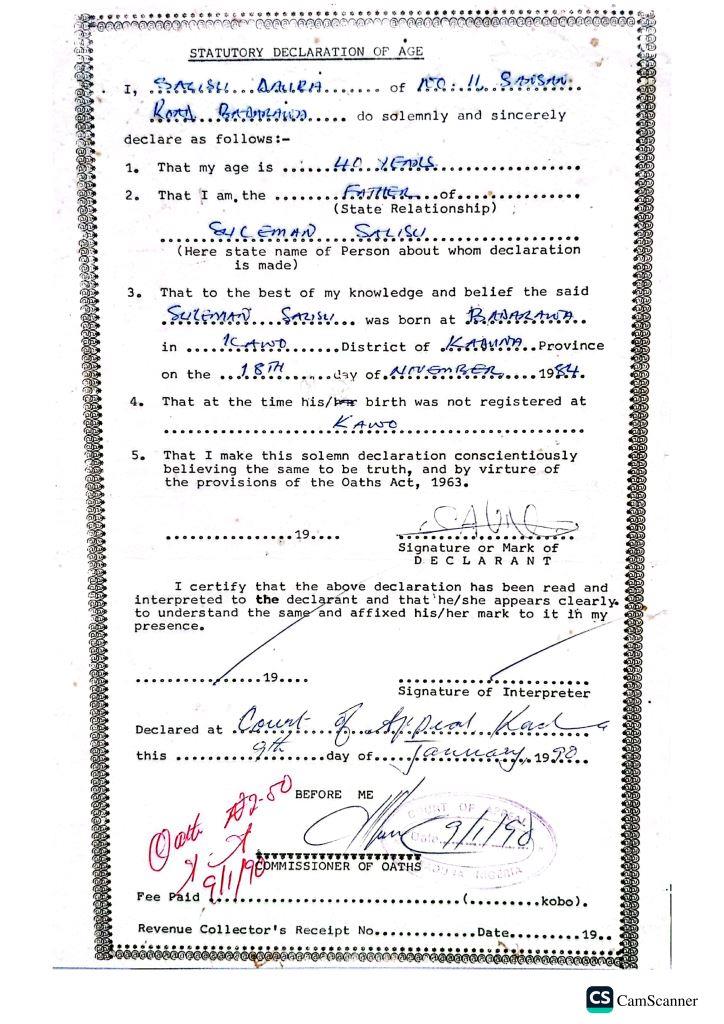 STATUTORY DECLARATION OF AGE
I, SALISU DAURA of NO: 11
ROAD BADARAWA do solemnly and sincerely
declare as follows:-
1. That my age is 40 YEARS
2. That I am the FATHER of
(State Relationship)
SULEMAN SALISU
(Here state name of Person about whom declaration
is made)
3. That to the best of my knowledge and belief the said
SULEMAN SALISU was born at BADARAWA
in KAWO District of KADUNA Province
on the 18TH day of NOVEMBER 1984.
4. That at the time his/her birth was not registered at
KAWO
5. That I make this solemn declaration conscientiously
believing the same to be truth, and by virtue of
the provisions of the Oaths Act, 1963.
19
Signature or Mark of
DECLARANT
I certify that the above declaration has been read and
interpreted to the declarant and that he/she appears clearly
to understand the same and affixed his/her mark to it in my
presence.
19
Signature of Interpreter
Declared at Court of Appeal Kaduna
this 9th day of January, 1990
BEFORE ME
Oath ₦2-50
9/1/90
COURT OF APPEAL
Date 9/1/90
KADUNA NIGERIA
COMMISSIONER OF OATHS
Fee Paid (kobo).
Revenue Collector's Receipt No. Date 19
CS CamScanner